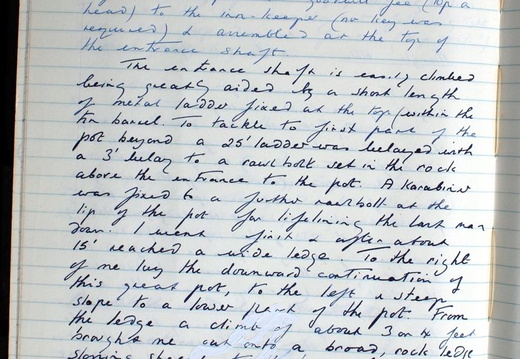 goodwill fee (10p a
head) to the inn-keeper (no key was
required) & assembled at the top of
the entrance shaft
The entrance shaft is easily climbed
being greatly aided by a short length
of metal ladder fixed at the top (within the
tin barrel. To tackle to first part of the
pot beyond a 25' ladder was belayed with
a 3' belay to a rawlbolt set in the rock
above the entrance to the pot. A Karabiner
was fixed to a further rawlbolt at the
lip of the pot for lifelining the last man
down. I went first & after about
15' reached a wide ledge. To the right
of me lay the downward continuation of
this great pot, to the left a steep
slope to a lower part of the pot. From
the ledge a climb of about 3 or 4 feet
brought me out onto a broad, rock ledge